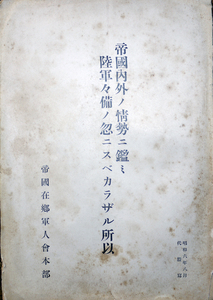 帝國內外ノ情勢ニ鑑ミ
陸軍々備ノ忽ニスベカラザル所以
昭和八年八月
帝國在鄕軍人會本部